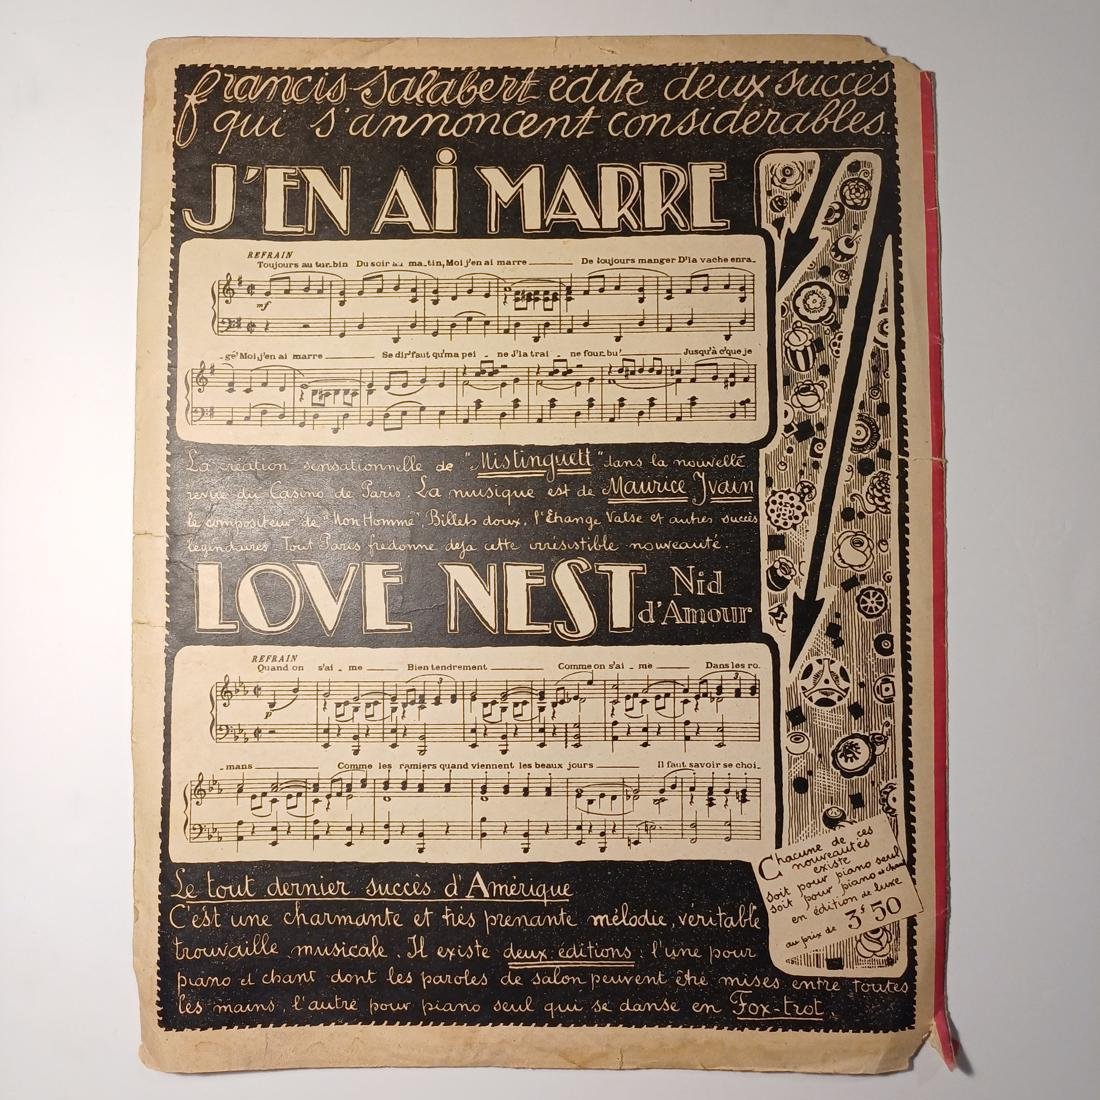 Francis Salabert édite deux succès
qui s'annoncent considérables.
J'EN AI MARRE
REFRAIN
Toujours au tur_bin Du soir au ma_tin, Moi j'en ai marre De toujours manger D'la vache enra_
_gé' Moi, j'en ai marre Se dir' faut qu'ma pei _ ne J'la traî _ ne four_bu' Jusqu'à c'que je
La création sensationnelle de "Mistinguett" dans la nouvelle
revue du Casino de Paris. La musique est de Maurice Yvain
le compositeur de "Mon Homme", Billets doux, l'Etrange Valse et autres succès
légendaires. Tout Paris fredonne déja cette irrésistible nouveauté.
LOVE NEST Nid
d'Amour
REFRAIN
Quand on s'ai _ me Bien tendrement Comme on s'ai _ me Dans les ro_
_mans Comme les ramiers quand viennent les beaux jours Il faut savoir se choi_
Le tout dernier succès d'Amérique
C'est une charmante et très prenante mélodie, véritable
trouvaille musicale. Il existe deux éditions : l'une pour
piano et chant dont les paroles de salon peuvent être mises entre toutes
les mains, l'autre pour piano seul qui se danse en Fox-trot.
Chacune de ces
nouveautés
existe
soit pour piano seul
soit pour piano et chant
en édition de luxe
au prix de 3f50